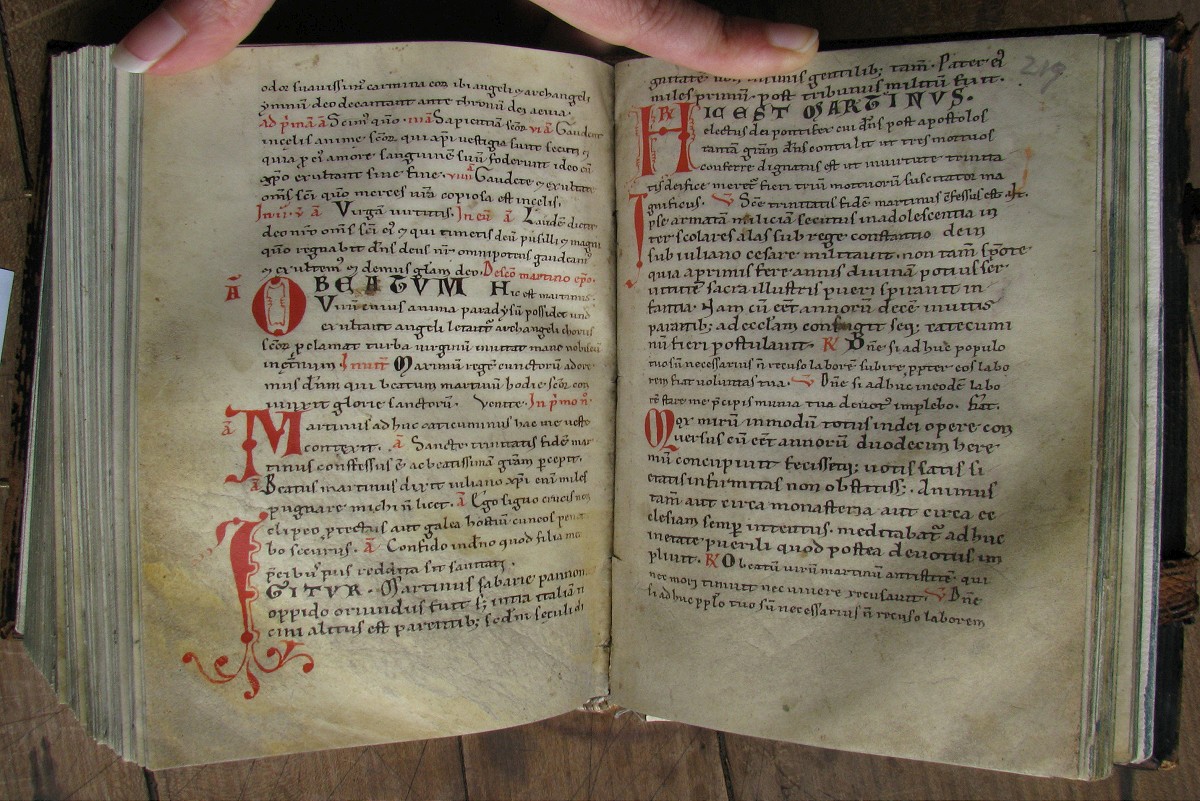 odor suauissim⁹ carmina cor ibi angeli ⁊ archangeli
ymnum deo decantant ante thronum dei aeuia.
ad p̄mā ā Scim⁹ quō · iiiā Sapientiā scōr viā Gaudent
incelis anime scōr qui xp̄i uestigia sunt secuti ⁊
quia p ei⁹ amore sanguinē suū fuderunt ideo cū
xp̄o exultant sine fine · viiiā Gaudete ⁊ exultate
om̄s sc̄i quō merces urā copiosa est incelis.
In ii⁹ v̄ ā Virgā uirtutis. In eu ā Laudē dicite
deo nr̄o om̄s sc̄i ei⁹ ⁊ qui timetis deū pusilli ⁊ magni
quō regnabit dn̄s deus nr̄ omnipotens gaudeam⁹
⁊ exultem⁹ ⁊ demus glām deo. De sc̄o martino ep̄o.
ā O BEATVM Hic est martinus.
Virū cuius anima paradysū possidet und
exultant angeli letant̄ archangeli chorus
scōr p̄clamat turba uirginū inuitat mane nobiscū
inet̄num. Inuit̄ Martinus regē cunctorū adore
mus dn̄m qui beatum martinū hodie scōr con
iunxit glorie sanctorū. Venite. In p̄mo n̄.
ā Martinus adhuc caticuminus hac me ueste
contexit. ā Sancte trinitatis fidē mar
tinus confessus ē ac beatissimā grām percepit.
ā Beatus martinus dixit iuliano xp̄i enī miles
pugnare michi n̄ licet. ā Ego signo crucis non
clipeo p̄tectus aut galea hostiū cuneos penet
bo securus. ā Confido indn̄o quod filia mea
p̄cib⁹ tuis reddita sit sanitati.
IGITVR. Martinus sabarie pannoni
oppido oriundus fuit s; intra italiā ti
cini altus est parentib; scdm̄ seculi di
219
gnitate non infimis gentilib; tam̄. Pater ei⁹
miles primū. post tribunus militū fuit.
R̄ HIC EST MARTINVS.
electus dei pontifex cui dn̄s post apostolos
tantā grām dn̄s contulit ut tres mortuos
conferre dignatus est ut in uirtute trinita
tis deifice meret̄ fieri triū mortuorū suscitator ma
gnificus. V Sc̄e trinitatis fidē martinus cfessus est. alt.
Ipse armatā miliciā secutus in adolescentia in
ter scolares alas sub rege constantio dein
sub iuliano cesare militauit. non tam̄ spōte
quia a primis fere annis diuinā potius ser
uitutē sacra illustris pueri spirauit in
fantia. Nam cū eēt annorū decē inuitis
parentib; ad ecclam confugit seq; catecumi
nū fieri postulauit. R̄ Dn̄e si adhuc populo
tuo sū necessarius n̄ recuso laborē subire ppter eos labo
rem fiat uoluntas tua. V Dn̄e si adhuc in eodē labo
re stare me p̄cipis munia tua deuot⁹ implebo. fiat.
Mox mirū inmodū totus in dei opere con
uersus cū eēt annorū duodecim here
mū concupiuit fecisseq; uotis satis si
etatis infirmitas non obstitiss;. Animus
tam̄ aut circa monasteria aut circa ec
clesiam semp̄ intentus. meditabat̄ adhuc
in etate puerili quod postea deuotus im
pleuit. R̄ O beatū uirū martinū antistitē qui
nec mori timuit nec uiuere recusauit. V Dn̄e
si adhuc pplo tuo sū necessarius n̄ recuso laborem